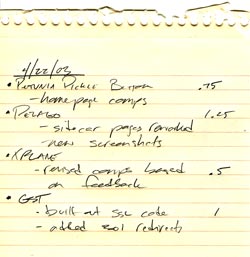 4/22/03
• Petunia Pickle Bottom .75
- homepage comps
• Pelago 1.25
- sidecar pages reworked
- new screenshots
• XPLANE
- revised comps based .5
on feedback
• GST
- built out SSL code 1
- added 301 redirects